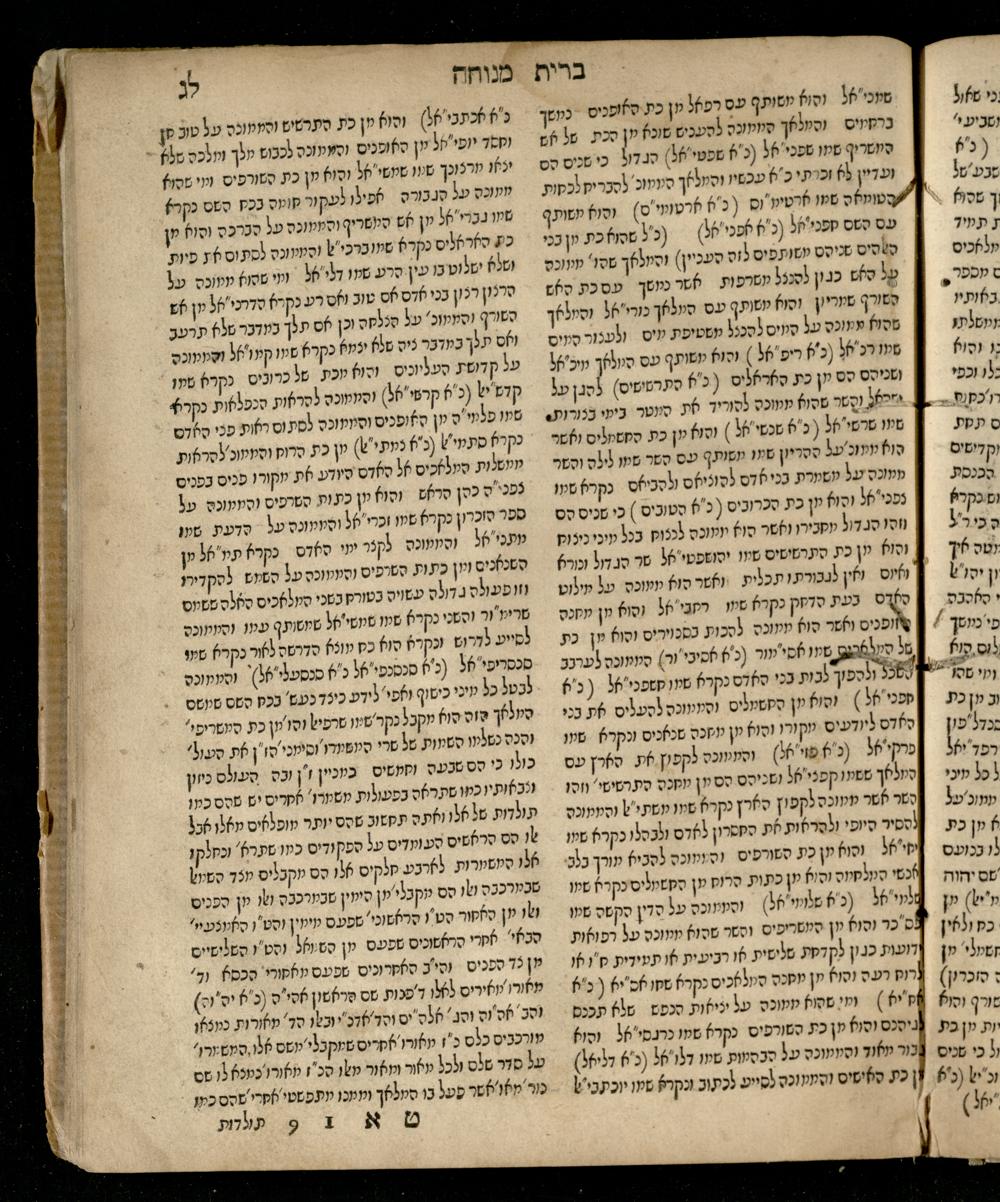 ברית מנוחה
לג
שמכי"אל והוא משותף עם רפאל מן כת האופנים כמשך
ברחמים והמלאך הממונה להעניש שונא מן הכת של אש
המשריף שמו שפכי"אל (כ"א שפטי"אל) הגדול כי שנים הם
ועדיין לא זכרתי כ"א עכשיו והמלאך הממונ' להבריח לכחות
הטומאה שמו ארטימ"וס (כ"א ארטומי"ס) והוא משותף
עם השם חפכי"אל (כ"א אפכי"אל) (כ"ל שהוא כת מן בני
האלהים שניהם משותפים לזה הענין) והמלאך שהו' ממונה
על האש כגון להנצל משרפות אשר כמשך עם כת האש
השורף שמריון והוא משותף עם המלאך נורי"אל והמלאך
שהוא ממונה על המים להנצל משטיפת מים ולעצור המים
שמו רכ"אל (כ"א ריפ"אל) והוא משותף עם המלאך מיכ"אל
ושניהם הם מן כת האראלים (כ"א התרשישים) להגן על
ישראל והשר שהוא ממונה להוריד את המטר בימי בצורות
שמו שרשי"אל (כ"א שכשי"אל) והוא מן כת החשמלים ואשר
הוא ממונ' על ההריון שמו משותף עם השר שמו לילה והשר
ממונה על משמרת בני אדם להוציאם ולהביאם נקרא שמו
צפני"אל והוא מן כת הכרובים (כ"א הטובים) כי שנים הם
וזהו הגדול מחבירו ואשר הוא ממונה לנצוח בכל מיני ניצוח
והוא מן כת התרשישים שמו יהושפטי"אל שר הגדול ונורא
ואיום ואין לגבורתו תכלית ואשר הוא ממונה על מילוט
האדם בעת הדחק נקרא שמו רחבי"אל והוא מן מחנה
האופנים ואשר הוא ממונה להכות בסנוירים והוא מן כת
של המלאכים שמו אסי"מור (כ"א אסיבי"ור) הממונה לערבב
השכל ולהפוך לבות בני האדם נקרא שמו חשפני"אל (כ"א
חפני"אל) והוא מן החשמלים והממונה להעלים את בני
האדם ליודעים מקורו והוא מן מחנה שנאנים ונקרא שמו
פרקי"אל (כ"א פוי"אל) והממונה לקפוץ את הארץ עם
המלאך ששמו קפני"אל ושניהם הם מן מחנה התרשישי' וזהו
השר אשר ממונה לקפוץ הארץ נקרא שמו משתי"א והממונה
להסיר היופי ולהראות את החסרון לאדם ולבהלו נקרא שמו
יחי"אל והוא מן כת השורפים והממונה להביא מורך בלב
אנשי המלחמה והוא מן כתות הרוח מן החשמלים נקרא שמו
שלמי"אל (כ"א שלומי"אל) והממונה על הדין הקשה שמו
חס"כר והוא מן המשריפים והשר שהוא ממונה על רפואות
ידועות כגון לקדחת שלישית או רביעית או תמידית ח"ו או
לרוח רעה והוא מן מחנה המלאכים נקרא שמו אס"יא (כ"א
אח"יא) ומי שהוא ממונה על יציאות הנפש שלא תכנס
לגיהנם והוא מן כת השורפים נקרא שמו כרנסי"אל והוא
גבור מאוד והממונה על הבהמות שמו דלו"אל (כ"א דליאל)
מן כת האישים והממונה לסייע לכתוב ונקרא שמו יוכתבי"א
כ"א אכתבי"אל) והוא מן כת התרשיש והממונה על טוב חן
וחסד יופי"אל מן האופנים והממונה לכבוש מלך ומלכה שלא
יצאו מרצונך שמו שמשי"אל והוא מן כת השורפים ומי שהוא
ממונה על הגבורה אפילו לעקור חומה בכח השם נקרא
שמו גברי"אל מן אש המשריף והממונה על הברכה והוא מן
כת האראלים נקרא שמו ברכי"א והממונה לסתום את פיות
ושלא ישלוט בו עין הרע שמו דלי"אל ומי שהוא ממונה על
הרצון רצון בני אדם אם טוב ואם רע נקרא הדרכי"אל מן אש
השורף והממונ' על הצלחה וכן אם תלך במדבר שלא תרעב
ואם תלך במדבר ציה שלא יצמא נקרא שמו קמו"אל והממונה
על קדושת העליונים והוא מכת של כרובים נקרא שמו
קדש"יא (כ"א קרשי"אל) והממונה להראות הנפלאות נקרא
שמו פלמי"ה מן האופנים והממונה לסתום ראות פני האדם
נקרא סתמי"א (כ"א נמתי"א) מן כת הרוח והממונ' להראות
ממשלות המלאכים אל האדם היודע את מקורו פנים בפנים
צפני"ה כהן הראש והוא מן כתות השרפים והממונה על
ספר הזכרון נקרא שמו זכרי"אל והממונה על הדעת שמו
מתני"אל והממונה לקצר ימי האדם נקרא תמ"אל מן
השנאנים ומן כתות השרפים והממונה על השמש להקדירו
וזו פעולה גדולה עשויה בטורח בשני המלאכים האלה ששמם
שרימ"ור והשני נקרא שמו שמשי"אל שמשותף עמו והממונה
לסייע לדרוש ונקרא הוא כח מוצא הדרשה לאור נקרא שמו
סכסריפי"אל (כ"א סכסכפי"אל כ"א סכסעלי"אל) והממונה
לבטל כל מיני כישוף ואפי' לידע כיצד נעש' בכח השם שמשם
המלאך הזה הוא מקבל נקר' שמו שרפי"א והו' מן כת המשריפי'
והנה נשלמו השמות של שרי המשמרו' וסימני' הז"ן את העול'
כולו כי הם שבעה וחמשים כמניין ז"ן ובה העולם ניזון
וצבאותיו כמו שתראה בפעולות משמרו' אחרים יש שהם כמו
תולדות של אלו ואתה תחשוב שהם יותר מופלאים מאלו אבל
אלו הם הראשים העומדים על הפקודים כמו שתרא' ונחלקו
אלו המשמרות לארבע חלקים אלו הם מקבלים מצד השמאל
שבמרכבה ואלו הם מקבלי' מן הימין שבמרכבה ואלו מן הפנים
ואלו מן האחור הט"ו הראשוני' שפעם מימין והט"ו האמצעיי'
הבאי' אחרי הראשונים שפעם מן השמאל והט"ו השלישיים
מן צד הפנים והי"ב האחרונים שפעם מאחורי הכסא וד'
מאורו' מאירים לאלו ד' פנות שם הראשון אהי"ה (כ"א יה"וה)
והב' אה"וה והג' אלה"ים והד' אדנ"י ובאלו הד' מאורות נמצאו
מורכבים כלם כ"ז מאורו' אחרים שמקבלי' משם אלו המשמרו'
על סדר שלם ולכל מאור ומאור מאלו הכ"ז מאורו' נמצא לו שם
כור' מאו' אשר פעל בו המלאך וממנו מתפשטי' אחרי' שהם כמו
ט א 1 9 תולדות